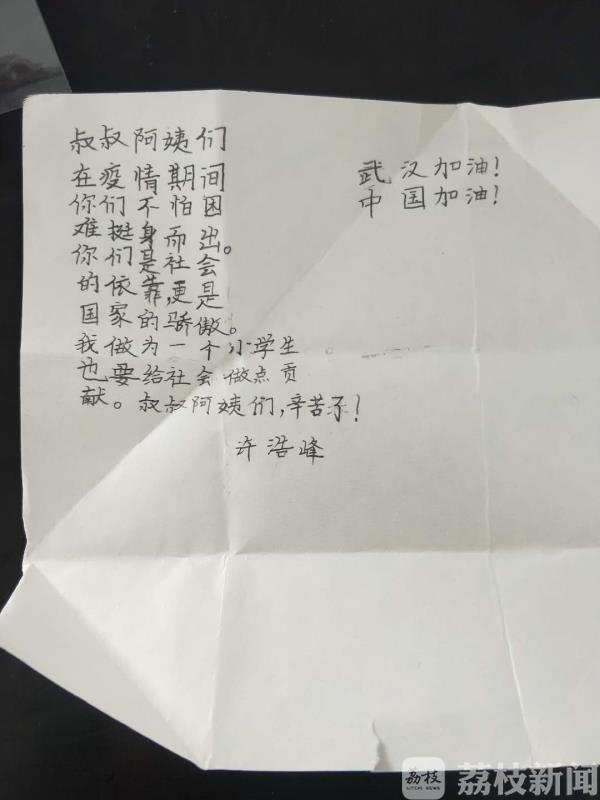 叔叔阿姨们
在疫情期间
你们不怕困
难挺身而出。
你们是社会
的依靠,更是
国家的骄傲。
我做为一个小学生
也要给社会做点贡
献。叔叔阿姨们,辛苦了!
许浩峰
武汉加油!
中国加油!
荔枝
LITCHI NEWS
荔枝新闻